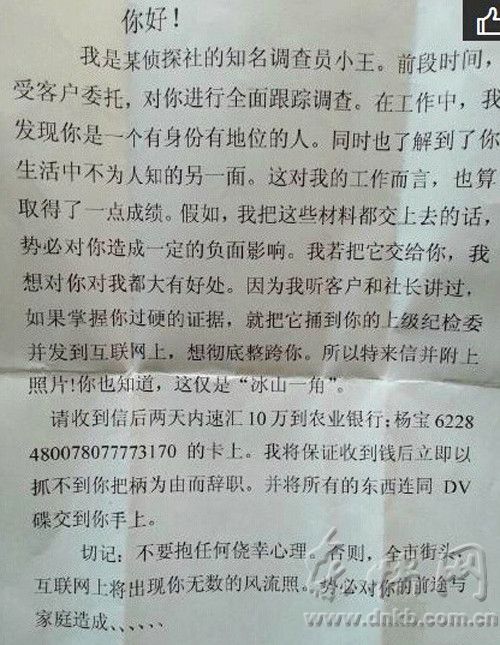 你好！
我是某侦探社的知名调查员小王。前段时间，
受客户委托，对你进行全面跟踪调查。在工作中，我
发现你是一个有身份有地位的人。同时也了解到了你
生活中不为人知的另一面。这对我的工作而言，也算
取得了一点成绩。假如，我把这些材料都交上去的话，
势必对你造成一定的负面影响。我若把它交给你，我
想对你对我都大有好处。因为我听客户和社长讲过，
如果掌握你过硬的证据，就把它捅到你的上级纪检委
并发到互联网上，想彻底整跨你。所以特来信并附上
照片！你也知道，这仅是“冰山一角”。
请收到信后两天内速汇10万到农业银行：杨宝6228
480078077773170 的卡上。我将保证收到钱后立即以
抓不到你把柄为由而辞职。并将所有的东西连同 DV
碟交到你手上。
切记：不要抱任何侥幸心理。否则，全市街头；
互联网上将出现你无数的风流照。势必对你的前途与
家庭造成、、、、、、
东快网
www.dnkb.com.cn